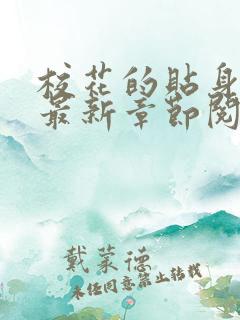 校花的贴身
最新章节阅
戴叶德
未经同意禁止转载